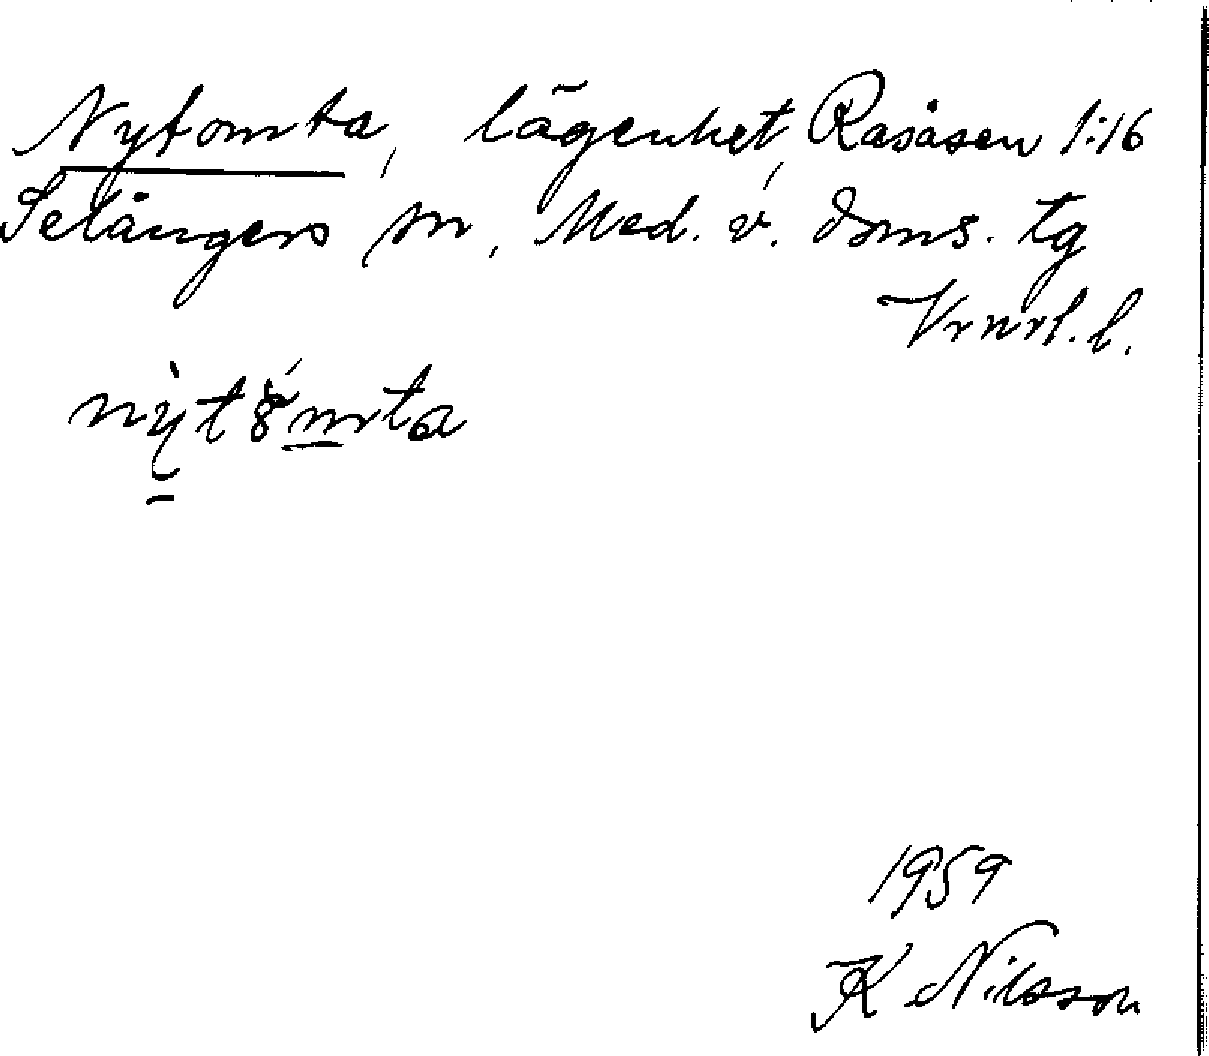 Nytomta, lägenhet, Rasåsen 1:16
Selångers sn, Med. v. doms. tg
Vrnrl. l.
1959
K Nilsson